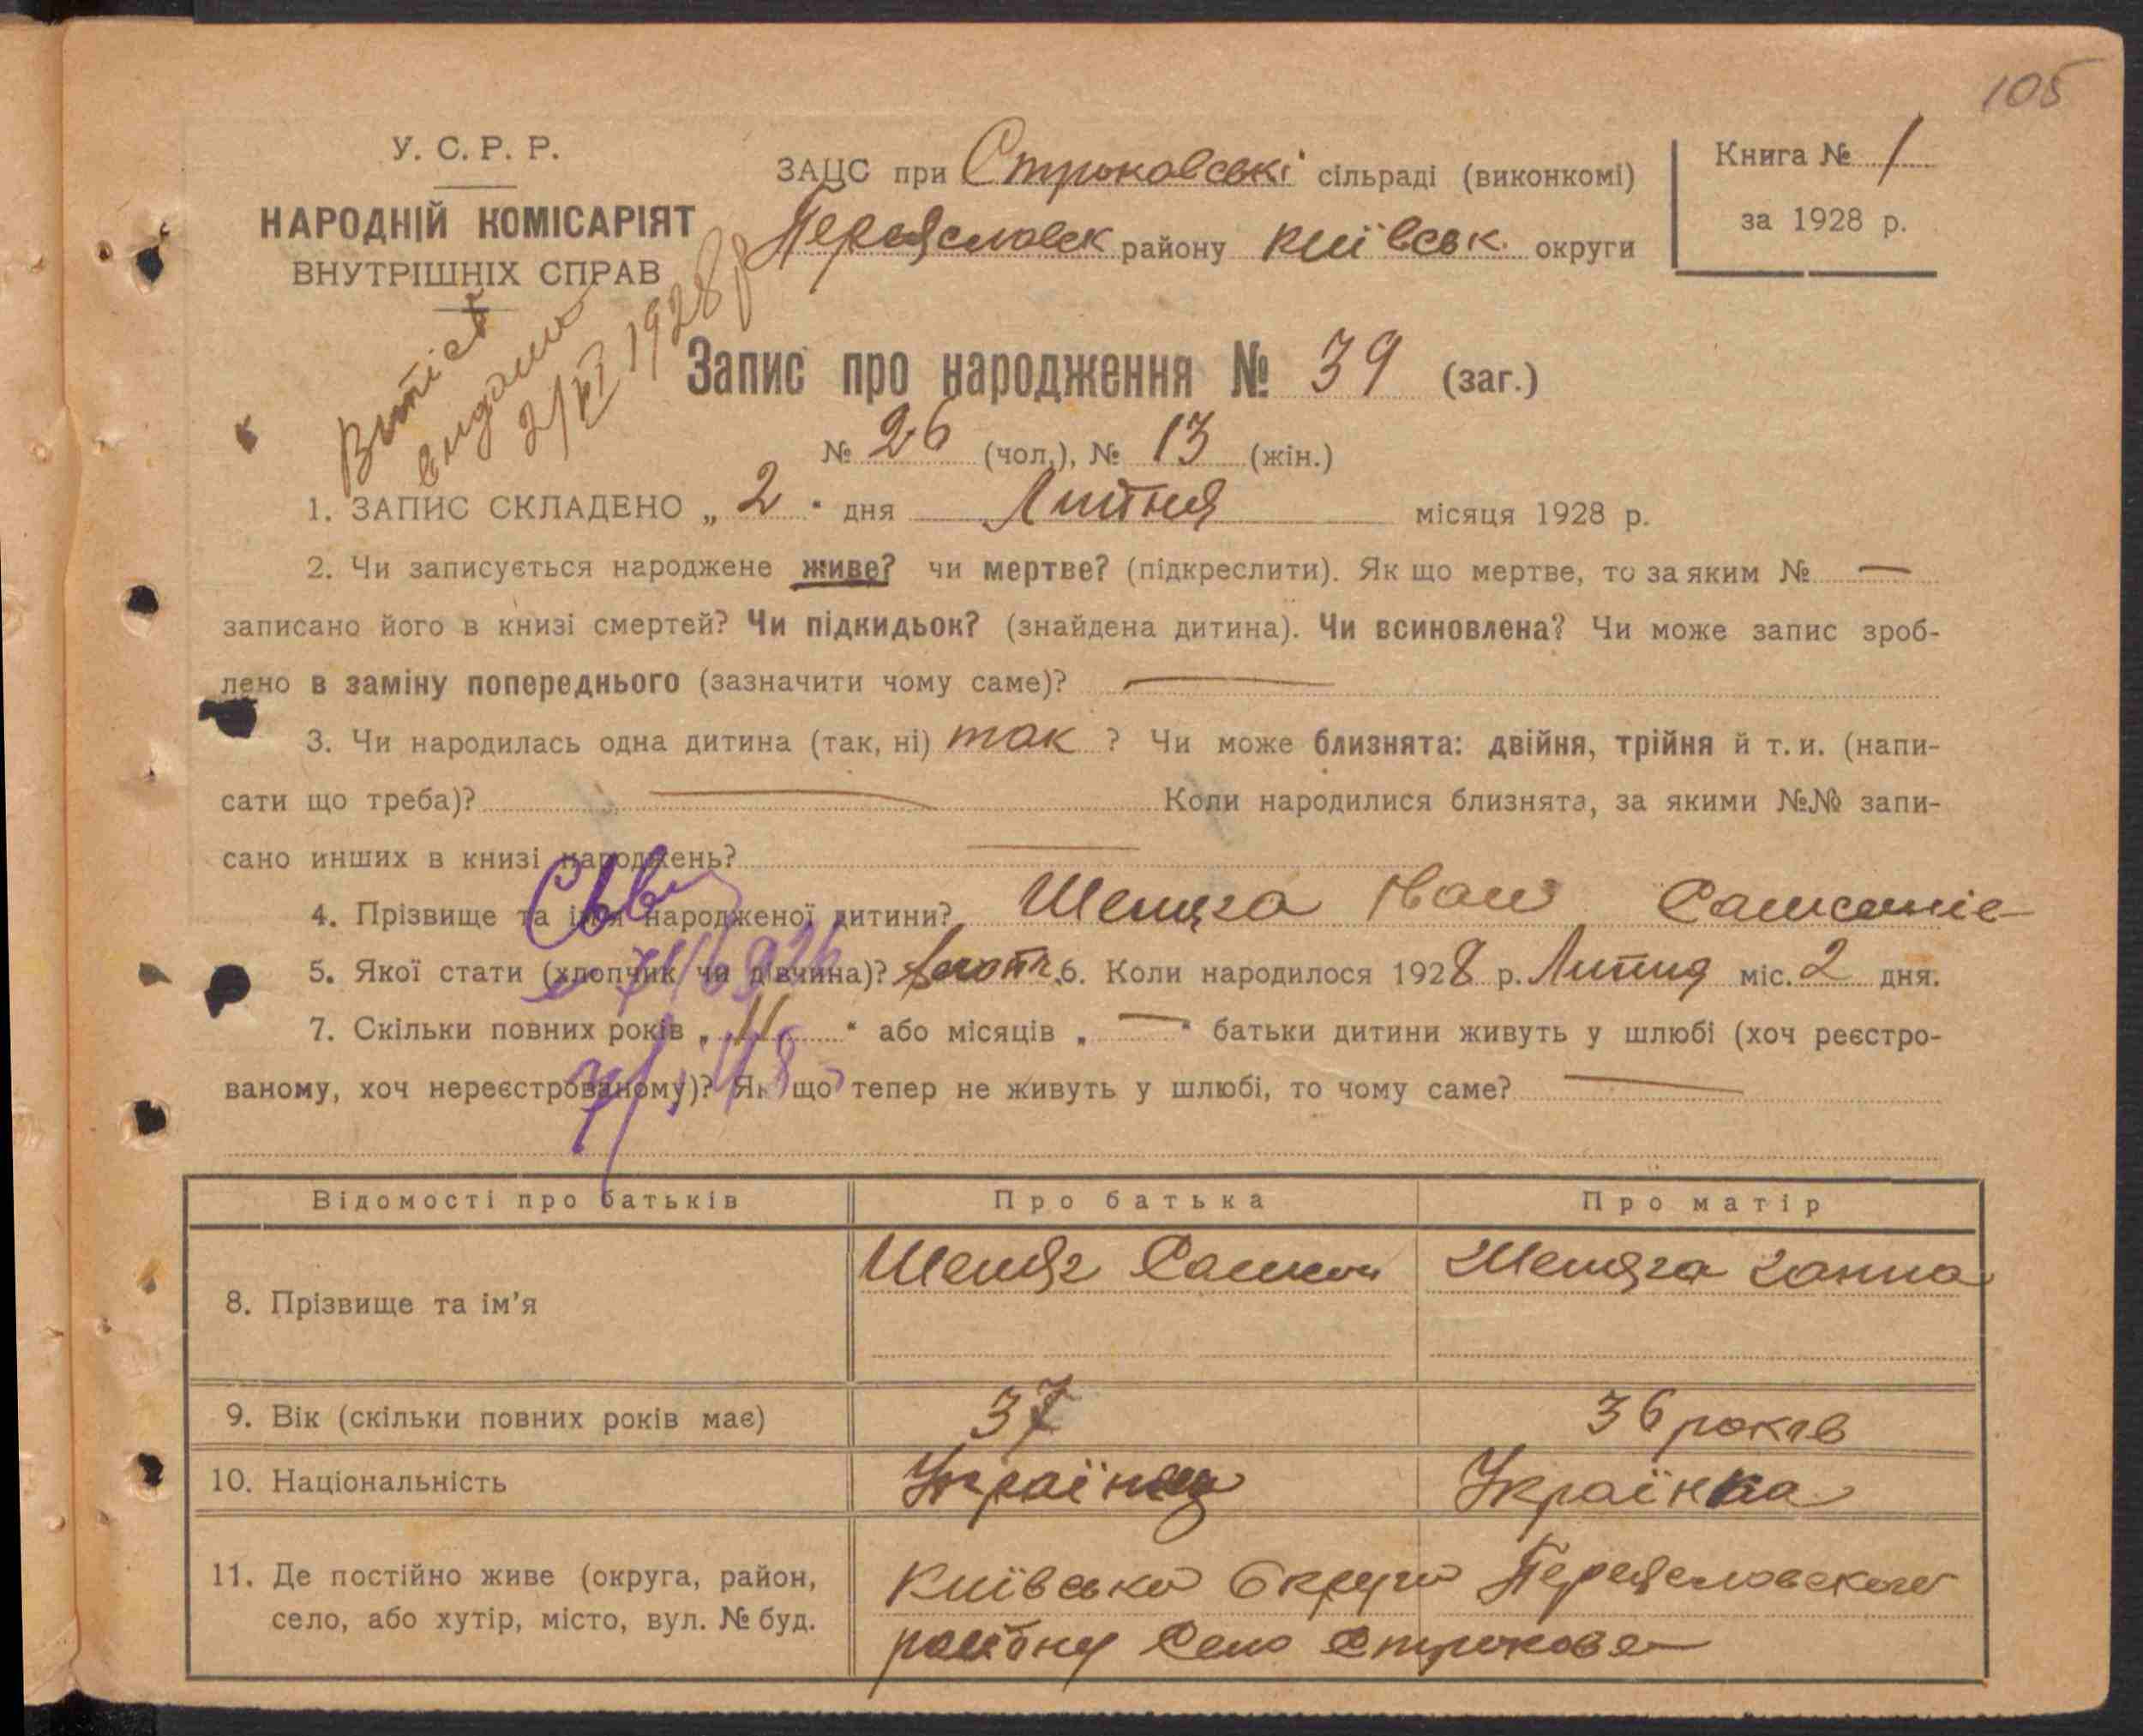 105
У. С. Р. Р.
НАРОДНІЙ КОМІСАРІЯТ
ВНУТРІШНІХ СПРАВ
ЗАЦС при Строковські сільраді (виконкомі)
Переяславск району київськ. округи
Книга № 1
за 1928 р.
Витяг
видано
2/VI 1928 р
Запис про народження № 39 (заг.)
№ 26 (чол.), № 13 (жін.)
1. ЗАПИС СКЛАДЕНО „ 2 " дня Липня місяця 1928 р.
2. Чи записується народжене живе? чи мертве? (підкреслити). Як що мертве, то за яким № —
записано його в книзі смертей? Чи підкидьок? (знайдена дитина). Чи всиновлена? Чи може запис зроб-
лено в заміну попереднього (зазначити чому саме)? —
3. Чи народилась одна дитина (так, ні) так ? Чи може близнята: двійня, трійня й т. и. (напи-
сати що треба)? — Коли народилися близнята, за якими №№ запи-
сано инших в книзі народжень? —
4. Прізвище та ім'я народженої дитини? Шеляга Иван
5. Якої стати (хлопчик чи дівчина)? 6. Коли народилося 1928 р. Липня міс. 2 дня.
7. Скільки повних років „ 11 " або місяців „ — " батьки дитини живуть у шлюбі (хоч реєстро-
ваному, хоч нереєстрованому)? Як що тепер не живуть у шлюбі, то чому саме? —
Відомості про батьків Про батька Про матір
8. Прізвище та ім'я Шеляг Самсон Шеляга Ганна
9. Вік (скільки повних років має) 37 36 років
10. Національність Українец Українка
11. Де постійно живе (округа, район, Київсько Округи Переяславского
село, або хутір, місто, вул. № буд. району Село Строкова